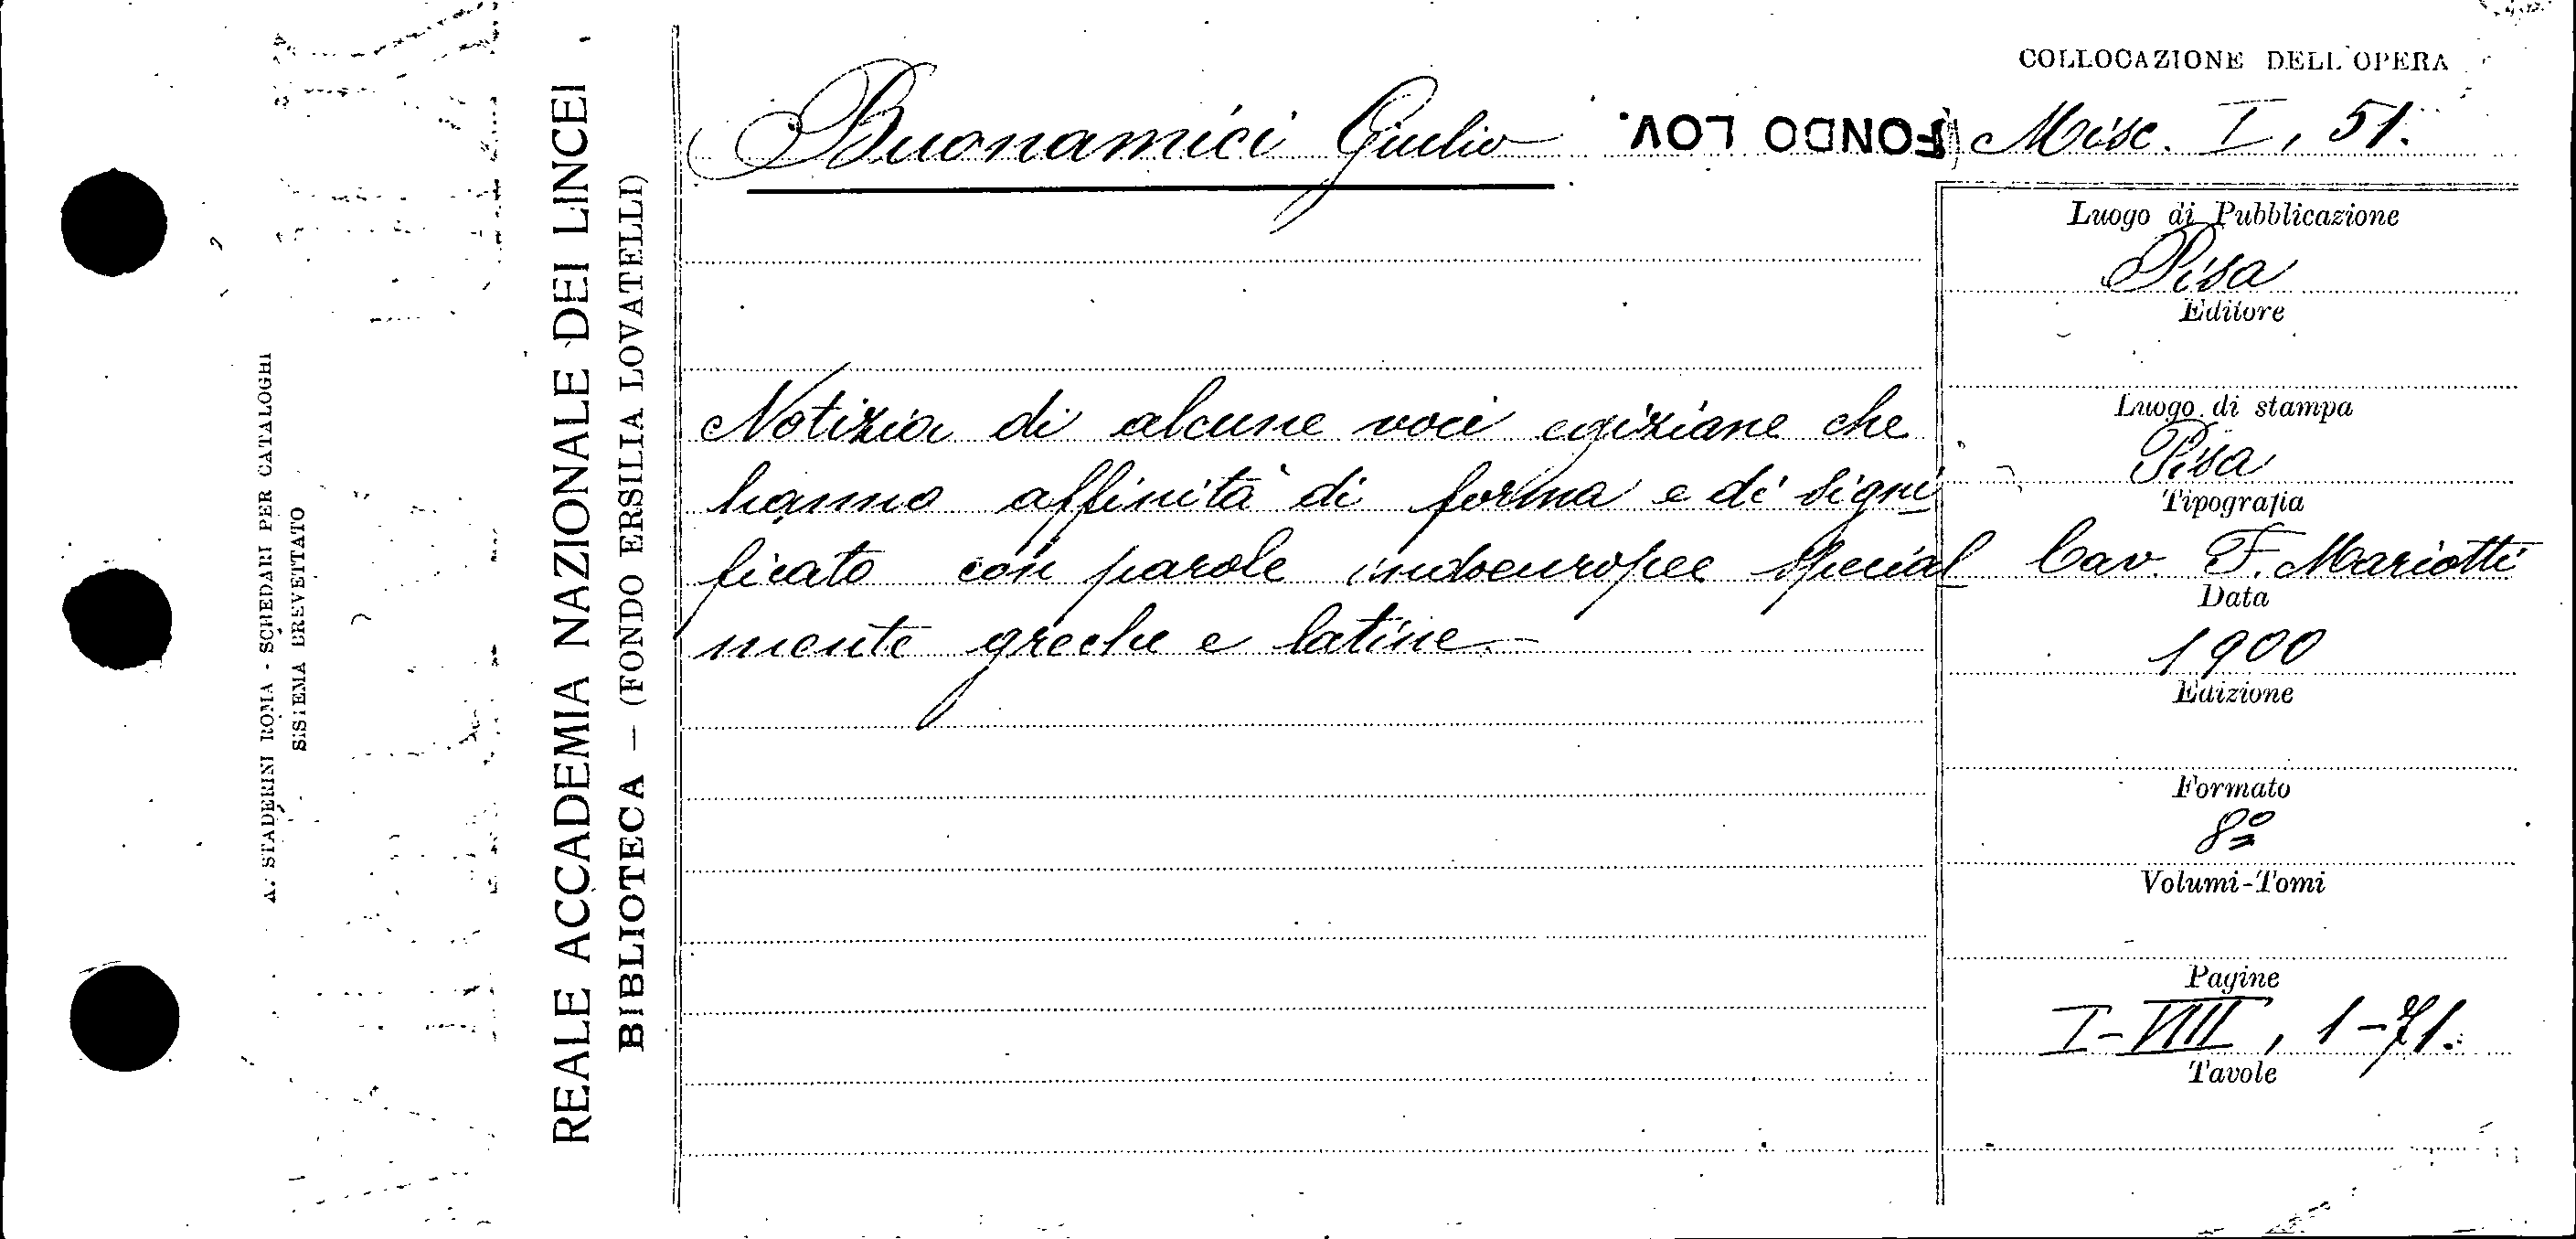 COLLOCAZIONE DELL'OPERA
Buonamici Giulio
FONDO LOV.
Misc. I, 51.
Notizia di alcune voci egiziane che
hanno affinità di forma e di signi
ficato con parole indoeuropee special
mente greche e latine.
Luogo di Pubblicazione
Pisa
Editore
Luogo di stampa
Pisa
Tipografia
Cav. F. Mariotti
Data
1900
Edizione
Formato
8º
Volumi-Tomi
Pagine
I-VIII, 1-71.
Tavole
REALE ACCADEMIA NAZIONALE DEI LINCEI
BIBLIOTECA — (FONDO ERSILIA LOVATELLI)
A. STADERINI ROMA - SCHEDARI PER CATALOGHI
SISTEMA BREVETTATO